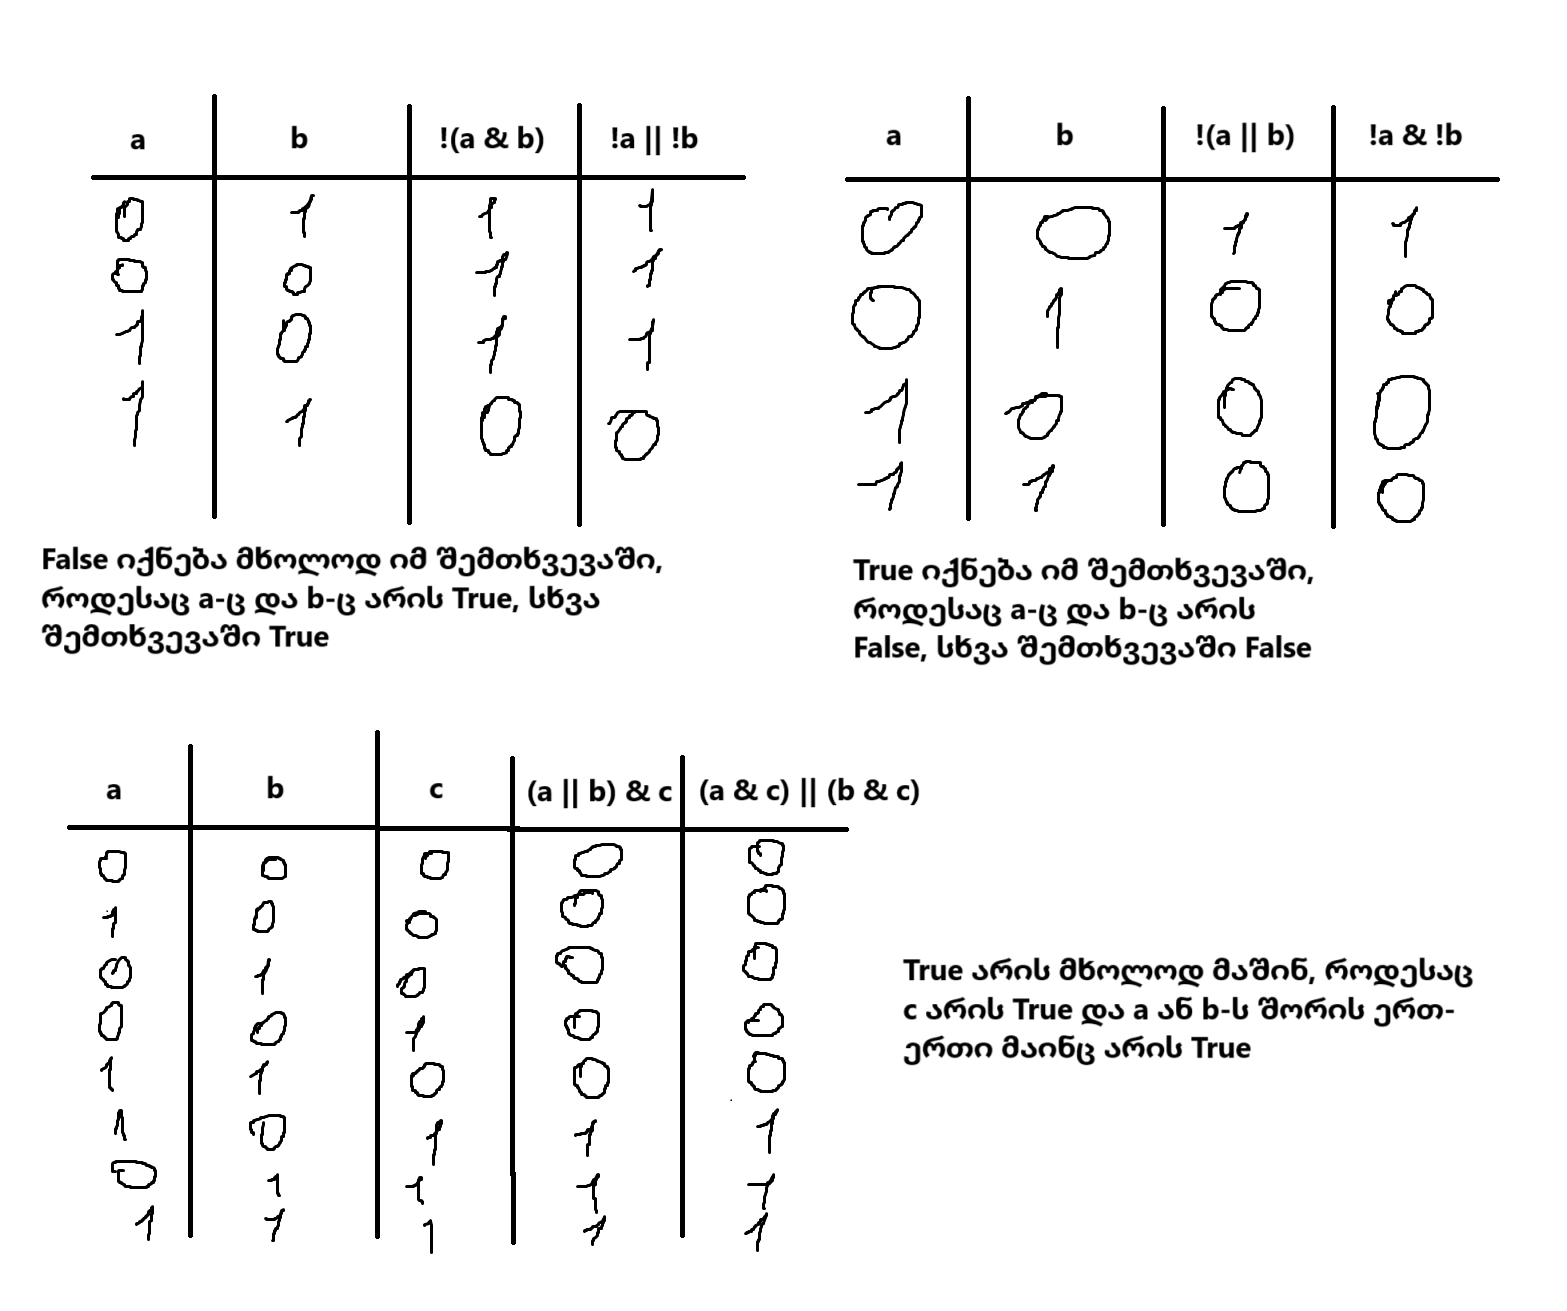 a b !(a & b) !a || !b
0 1 1 1
0 0 1 1
1 0 1 1
1 1 0 0
False იქნება მხოლოდ იმ შემთხვევაში,
როდესაც a-ც და b-ც არის True, სხვა
შემთხვევაში True
a b !(a || b) !a & !b
0 0 1 1
0 1 0 0
1 0 0 0
1 1 0 0
True იქნება იმ შემთხვევაში,
როდესაც a-ც და b-ც არის
False, სხვა შემთხვევაში False
a b c (a || b) & c (a & c) || (b & c)
0 0 0 0 0
1 0 0 0 0
0 1 0 0 0
0 0 1 0 0
1 1 0 0 0
1 0 1 1 1
0 1 1 1 1
1 1 1 1 1
True არის მხოლოდ მაშინ, როდესაც
c არის True და a ან b-ს შორის ერთ-
ერთი მაინც არის True